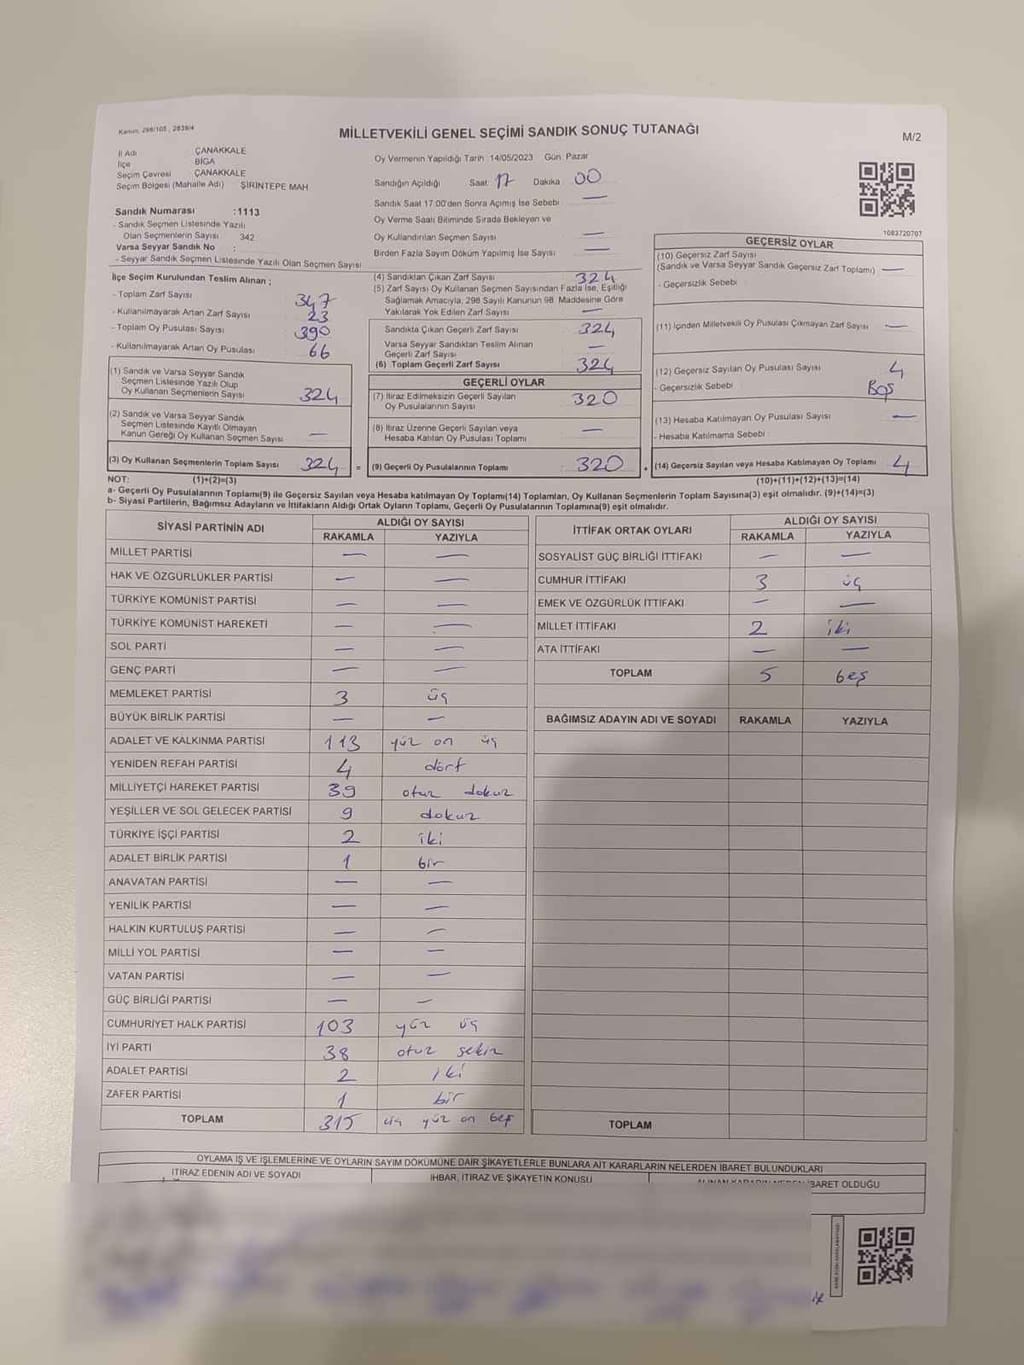 Kanun, 298/105 , 2839/4
MİLLETVEKİLİ GENEL SEÇİMİ SANDIK SONUÇ TUTANAĞI
M/2
İl Adı ÇANAKKALE
İlçe BİGA
Seçim Çevresi ÇANAKKALE
Seçim Bölgesi (Mahalle Adı) ŞİRİNTEPE MAH
Sandık Numarası :1113
- Sandık Seçmen Listesinde Yazılı
Olan Seçmenlerin Sayısı 342
Varsa Seyyar Sandık No :
- Seyyar Sandık Seçmen Listesinde Yazılı Olan Seçmen Sayısı
Oy Vermenin Yapıldığı Tarih 14/05/2023 Gün: Pazar
Sandığın Açıldığı Saat 17 Dakika 00
Sandık Saat 17:00'den Sonra Açılmış İse Sebebi —
Oy Verme Saati Bitiminde Sırada Bekleyen ve
Oy Kullandırılan Seçmen Sayısı —
Birden Fazla Sayım Döküm Yapılmış İse Sayısı —
1083720707
İlçe Seçim Kurulundan Teslim Alınan ;
- Toplam Zarf Sayısı 347
- Kullanılmayarak Artan Zarf Sayısı 23
- Toplam Oy Pusulası Sayısı 390
- Kullanılmayarak Artan Oy Pusulası 66
(1) Sandık ve Varsa Seyyar Sandık
Seçmen Listesinde Yazılı Olup
Oy Kullanan Seçmenlerin Sayısı 324
(2) Sandık ve Varsa Seyyar Sandık
Seçmen Listesinde Kayıtlı Olmayan
Kanun Gereği Oy Kullanan Seçmen Sayısı —
(3) Oy Kullanan Seçmenlerin Toplam Sayısı 324 =
(4) Sandıktan Çıkan Zarf Sayısı 324
(5) Zarf Sayısı Oy Kullanan Seçmen Sayısından Fazla İse, Eşitliği
Sağlamak Amacıyla, 298 Sayılı Kanunun 98. Maddesine Göre
Yakılarak Yok Edilen Zarf Sayısı —
Sandıkta Çıkan Geçerli Zarf Sayısı 324
Varsa Seyyar Sandıktan Teslim Alınan
Geçerli Zarf Sayısı —
(6) Toplam Geçerli Zarf Sayısı 324
GEÇERLİ OYLAR
(7) İtiraz Edilmeksizin Geçerli Sayılan
Oy Pusulalarının Sayısı 320
(8) İtiraz Üzerine Geçerli Sayılan veya
Hesaba Katılan Oy Pusulası Toplamı —
(9) Geçerli Oy Pusulalarının Toplamı 320 +
GEÇERSİZ OYLAR
(10) Geçersiz Zarf Sayısı
(Sandık ve Varsa Seyyar Sandık Geçersiz Zarf Toplamı) —
- Geçersizlik Sebebi
(11) İçinden Milletvekili Oy Pusulası Çıkmayan Zarf Sayısı —
(12) Geçersiz Sayılan Oy Pusulası Sayısı 4
- Geçersizlik Sebebi Boş
(13) Hesaba Katılmayan Oy Pusulası Sayısı —
- Hesaba Katılmama Sebebi
(14) Geçersiz Sayılan veya Hesaba Katılmayan Oy Toplamı 4
NOT: (1)+(2)=(3) (10)+(11)+(12)+(13)=(14)
a- Geçerli Oy Pusulalarının Toplamı(9) ile Geçersiz Sayılan veya Hesaba katılmayan Oy Toplamı(14) Toplamları, Oy Kullanan Seçmenlerin Toplam Sayısına(3) eşit olmalıdır. (9)+(14)=(3)
b- Siyasi Partilerin, Bağımsız Adayların ve İttifakların Aldığı Ortak Oyların Toplamı, Geçerli Oy Pusulalarının Toplamına(9) eşit olmalıdır.
SİYASİ PARTİNİN ADI ALDIĞI OY SAYISI
RAKAMLA YAZIYLA
MİLLET PARTİSİ — —
HAK VE ÖZGÜRLÜKLER PARTİSİ — —
TÜRKİYE KOMÜNİST PARTİSİ — —
TÜRKİYE KOMÜNİST HAREKETİ — —
SOL PARTİ — —
GENÇ PARTİ — —
MEMLEKET PARTİSİ 3 üç
BÜYÜK BİRLİK PARTİSİ — —
ADALET VE KALKINMA PARTİSİ 113 yüz on üç
YENİDEN REFAH PARTİSİ 4 dört
MİLLİYETÇİ HAREKET PARTİSİ 39 otuz dokuz
YEŞİLLER VE SOL GELECEK PARTİSİ 9 dokuz
TÜRKİYE İŞÇİ PARTİSİ 2 iki
ADALET BİRLİK PARTİSİ 1 bir
ANAVATAN PARTİSİ — —
YENİLİK PARTİSİ — —
HALKIN KURTULUŞ PARTİSİ — —
MİLLİ YOL PARTİSİ — —
VATAN PARTİSİ — —
GÜÇ BİRLİĞİ PARTİSİ — —
CUMHURİYET HALK PARTİSİ 103 yüz üç
İYİ PARTİ 38 otuz sekiz
ADALET PARTİSİ 2 iki
ZAFER PARTİSİ 1 bir
TOPLAM 315 üç yüz on beş
İTTİFAK ORTAK OYLARI ALDIĞI OY SAYISI
RAKAMLA YAZIYLA
SOSYALİST GÜÇ BİRLİĞİ İTTİFAKI — —
CUMHUR İTTİFAKI 3 üç
EMEK VE ÖZGÜRLÜK İTTİFAKI — —
MİLLET İTTİFAKI 2 iki
ATA İTTİFAKI — —
TOPLAM 5 beş
BAĞIMSIZ ADAYIN ADI VE SOYADI RAKAMLA YAZIYLA
TOPLAM
OYLAMA İŞ VE İŞLEMLERİNE VE OYLARIN SAYIM DÖKÜMÜNE DAİR ŞİKAYETLERLE BUNLARA AİT KARARLARIN NELERDEN İBARET BULUNDUKLARI
İTİRAZ EDENİN ADI VE SOYADI İHBAR, İTİRAZ VE ŞİKAYETİN KONUSU OLDUĞU